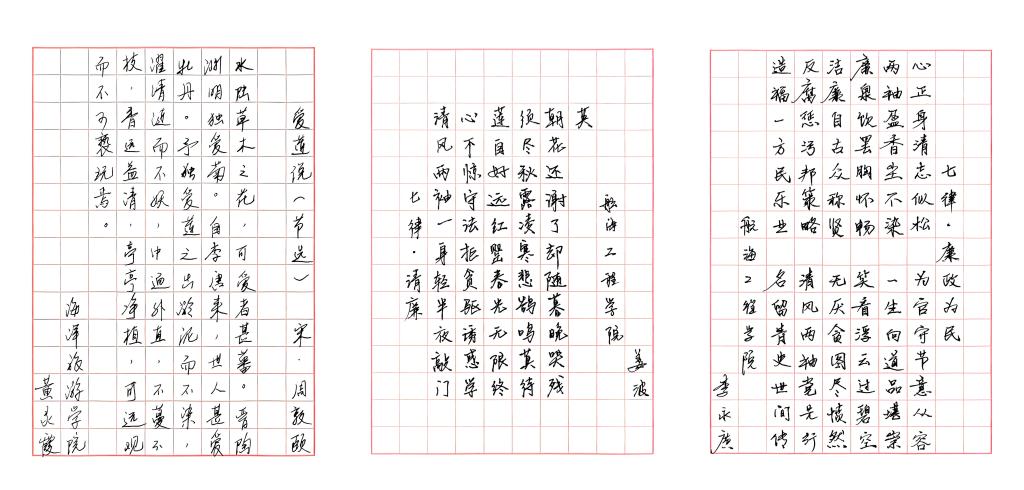 爱莲说(节选)宋·周敦颐
水陆草木之花,可爱者,甚蕃。晋陶
渊明独爱菊。自李唐来,世人甚爱
牡丹。予独爱莲之出淤泥而不染,
濯清涟而不妖,中通外直,不蔓不
枝,香远益清,亭亭净植,可远观
而不可亵玩焉。
海洋旅游学院
黄炎霞
七律·清廉
清风两袖一身轻半夜敲门
心不惊守法拒贪驱诱惑学
莲自好远红罂春光无限终
须尽秋露凌寒悲鹊鸣莫待
朝花还谢了却随暮晚哭残
英
航海工程学院
姜波
七律·廉政为民
心正身清志似松 为官守节意从容
两袖盈香尘不染 一生向道品堪崇
廉泉饮罢胸怀畅 笑看浮云过碧空
洁廉自古众称贤 无厌贪图尽愦然
反腐惩污邦策略 清风两袖党先行
造福一方民乐世 名留青史世间传
航海工程学院
李永广